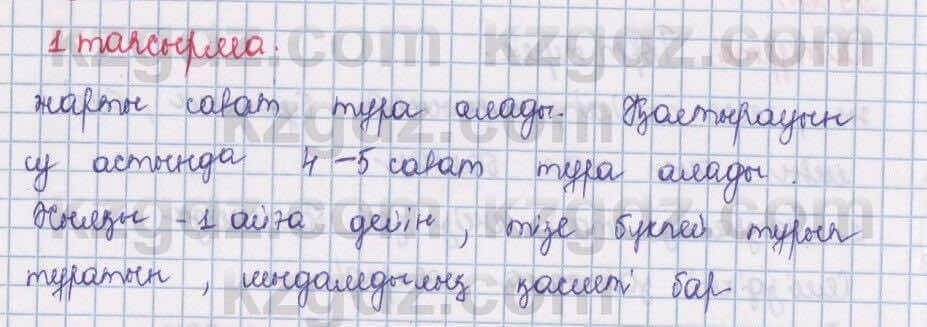 1 тапсырма.
жарты сағат тұра алады. Қолтырауын
су астында 4-5 сағат тұра алады.
Жылқы - 1 айға дейін, тізе бүкпей тұрып
тұратын, шыдамдылық қасиеті бар
kzgdz.com kzgdz.com
kzgdz.com kzgdz.com
kzgdz.com kzgdz.com